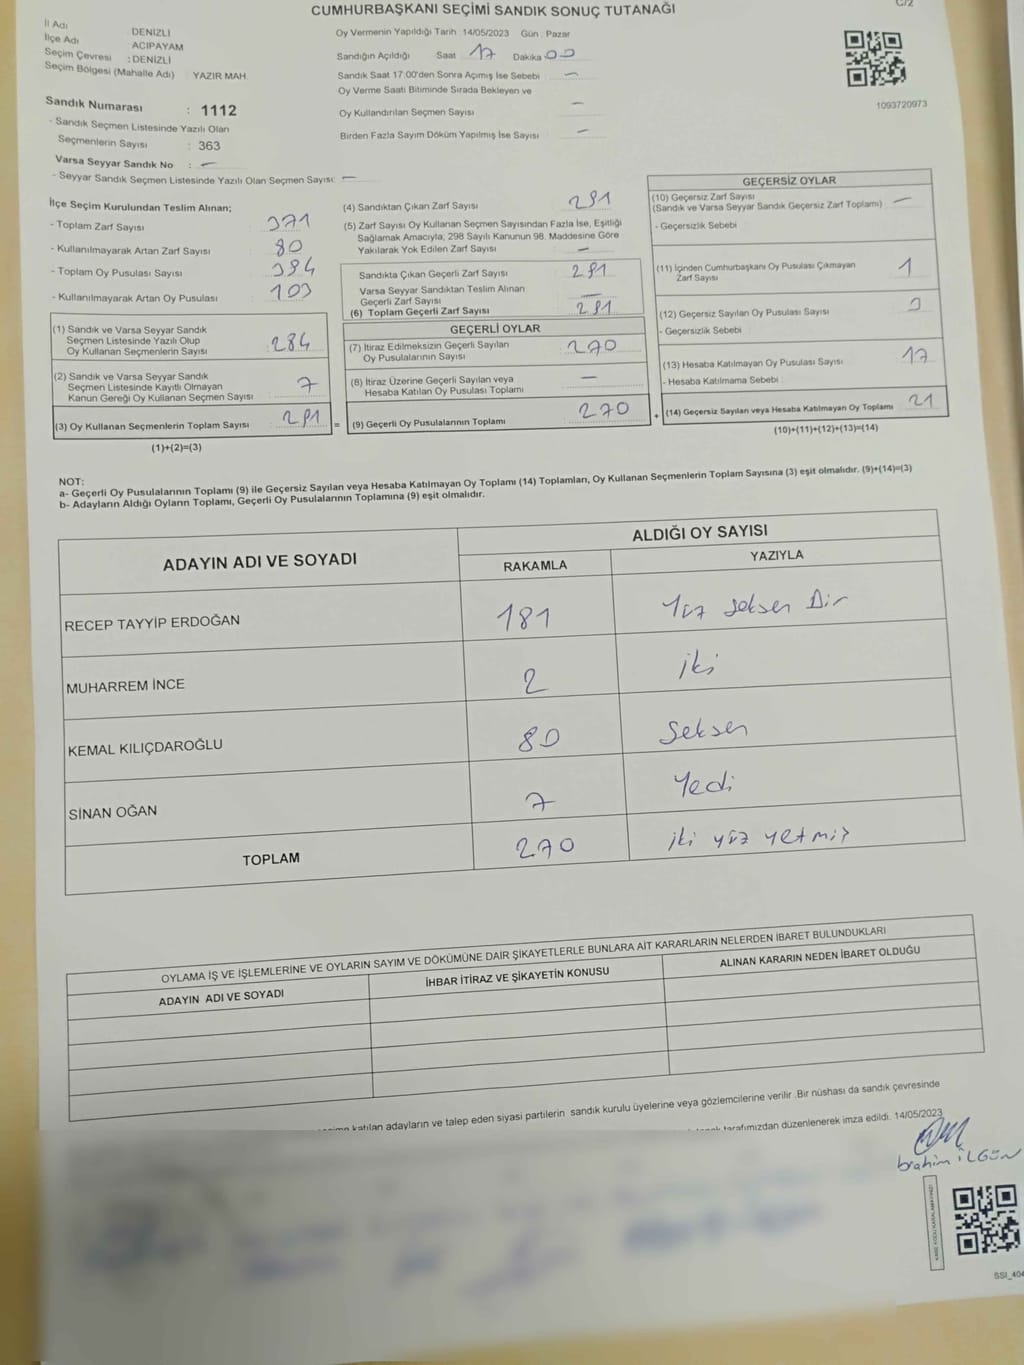 C/2
CUMHURBAŞKANI SEÇİMİ SANDIK SONUÇ TUTANAĞI
İl Adı DENİZLİ
İlçe Adı ACIPAYAM
Seçim Çevresi : DENİZLİ
Seçim Bölgesi (Mahalle Adı) YAZIR MAH.
Sandık Numarası : 1112
- Sandık Seçmen Listesinde Yazılı Olan
Seçmenlerin Sayısı : 363
Varsa Seyyar Sandık No : —
- Seyyar Sandık Seçmen Listesinde Yazılı Olan Seçmen Sayısı: —
Oy Vermenin Yapıldığı Tarih 14/05/2023 Gün : Pazar
Sandığın Açıldığı Saat 17 Dakika 00
Sandık Saat 17:00'den Sonra Açımış İse Sebebi —
Oy Verme Saati Bitiminde Sırada Bekleyen ve
Oy Kullandırılan Seçmen Sayısı —
Birden Fazla Sayım Döküm Yapılmış İse Sayısı —
1093720973
İlçe Seçim Kurulundan Teslim Alınan;
- Toplam Zarf Sayısı 371
- Kullanılmayarak Artan Zarf Sayısı 80
- Toplam Oy Pusulası Sayısı 394
- Kullanılmayarak Artan Oy Pusulası 103
(1) Sandık ve Varsa Seyyar Sandık
Seçmen Listesinde Yazılı Olup
Oy Kullanan Seçmenlerin Sayısı 284
(2) Sandık ve Varsa Seyyar Sandık
Seçmen Listesinde Kayıtlı Olmayan
Kanun Gereği Oy Kullanan Seçmen Sayısı 7
(3) Oy Kullanan Seçmenlerin Toplam Sayısı 291 =
(1)+(2)=(3)
(4) Sandıktan Çıkan Zarf Sayısı 291
(5) Zarf Sayısı Oy Kullanan Seçmen Sayısından Fazla İse, Eşitliği
Sağlamak Amacıyla; 298 Sayılı Kanunun 98. Maddesine Göre
Yakılarak Yok Edilen Zarf Sayısı —
Sandıkta Çıkan Geçerli Zarf Sayısı 291
Varsa Seyyar Sandıktan Teslim Alınan
Geçerli Zarf Sayısı —
(6) Toplam Geçerli Zarf Sayısı 291
GEÇERLİ OYLAR
(7) İtiraz Edilmeksizin Geçerli Sayılan
Oy Pusulalarının Sayısı 270
(8) İtiraz Üzerine Geçerli Sayılan veya
Hesaba Katılan Oy Pusulası Toplamı —
(9) Geçerli Oy Pusulalarının Toplamı 270 +
GEÇERSİZ OYLAR
(10) Geçersiz Zarf Sayısı
(Sandık ve Varsa Seyyar Sandık Geçersiz Zarf Toplamı) —
- Geçersizlik Sebebi
(11) İçinden Cumhurbaşkanı Oy Pusulası Çıkmayan
Zarf Sayısı 1
(12) Geçersiz Sayılan Oy Pusulası Sayısı 3
- Geçersizlik Sebebi
(13) Hesaba Katılmayan Oy Pusulası Sayısı 17
- Hesaba Katılmama Sebebi
(14) Geçersiz Sayılan veya Hesaba Katılmayan Oy Toplamı 21
(10)+(11)+(12)+(13)=(14)
NOT:
a- Geçerli Oy Pusulalarının Toplamı (9) ile Geçersiz Sayılan veya Hesaba Katılmayan Oy Toplamı (14) Toplamları, Oy Kullanan Seçmenlerin Toplam Sayısına (3) eşit olmalıdır. (9)+(14)=(3)
b- Adayların Aldığı Oyların Toplamı, Geçerli Oy Pusulalarının Toplamına (9) eşit olmalıdır.
ADAYIN ADI VE SOYADI
ALDIĞI OY SAYISI
RAKAMLA YAZIYLA
RECEP TAYYİP ERDOĞAN 181 Yüz Seksen Bir
MUHARREM İNCE 2 iki
KEMAL KILIÇDAROĞLU 80 Seksen
SİNAN OĞAN 7 Yedi
TOPLAM 270 iki yüz yetmiş
OYLAMA İŞ VE İŞLEMLERİNE VE OYLARIN SAYIM VE DÖKÜMÜNE DAİR ŞİKAYETLERLE BUNLARA AİT KARARLARIN NELERDEN İBARET BULUNDUKLARI
ADAYIN ADI VE SOYADI İHBAR İTİRAZ VE ŞİKAYETİN KONUSU ALINAN KARARIN NEDEN İBARET OLDUĞU
katılan adayların ve talep eden siyasi partilerin sandık kurulu üyelerine veya gözlemcilerine verilir. Bir nüshası da sandık çevresinde
tarafımızdan düzenlenerek imza edildi. 14/05/2023
İbrahim İLGÜN